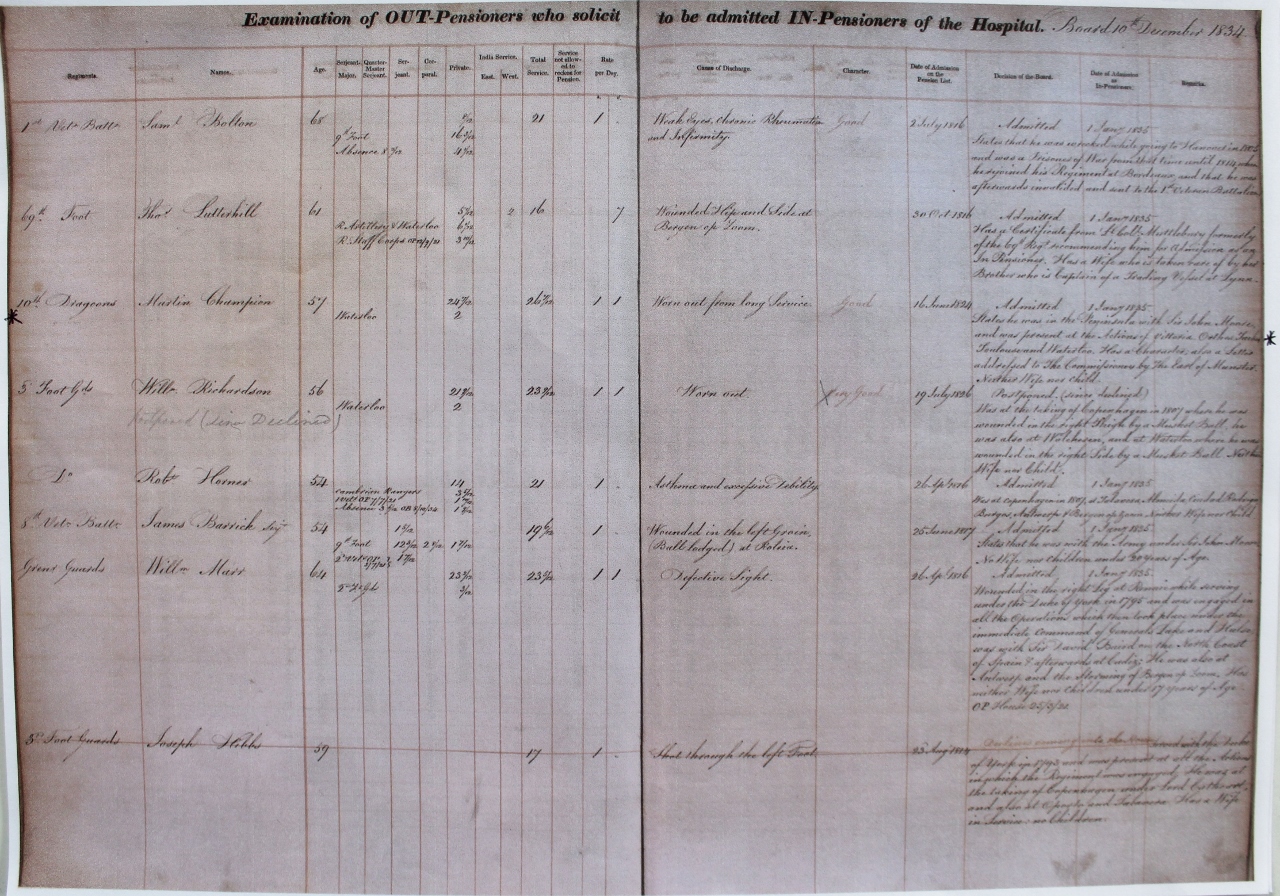 Examination of OUT-Pensioners who solicit to be admitted IN-Pensioners of the Hospital. Board 10th December 1834
Regiments. Name. Age. Serjeant-Major. Quarter-Master Serjeant. Serjeant. Corporal. Private. India Service. East. West. Total Service. Service not allowed to reckon for Pension. Rate per Day.
Cause of Discharge. Character. Date of Admission on the Pension List. Decision of the Board. Date of Admission as In-Pensioner. Remarks.
1st Vetn Battn Saml Bolton 68 21 1 Weak Eyes, chronic Rheumatism Good 2 July 1816 Admitted 1 Jany 1835
9th Foot and Infirmity.
Absence
States that he was wrecked while going to Hanover in 1805
and was a Prisoner of War from that time until 1814, when
he rejoined his Regiment at Bordeaux, and that he was
afterwards invalided and sent to the 1st Veteran Battalion
69th Foot Thos Lutterhill 61 2 16 7 Wounded Hip and Side at 30 Oct 1816 Admitted 1 Jany 1835
R. Artillery & Waterloo Bergen op Zoom.
R. Staff Corps
Has a Certificate from Lt Coll Muttlebury formerly
of the 69th Regt recommending him for Admission as an
In Pensioner. Has a Wife who is taken care of by her
Brother who is Captain of a Trading Vessel at Lynn.
10th Dragoons Martin Champion 57 1 1 Worn out from long Service. Good 16 June 1824 Admitted 1 Jany 1835
Waterloo 2
States he was in the Peninsula with Sir John Moore,
and was present at the Actions of Vittoria Orthes
Toulouse and Waterloo. Has a Character, also a Letter
addressed to The Commissioners by The Earl of Munster.
Neither Wife nor child.
3 Foot Gds Willm Richardson 56 1 1 Worn out. Very Good 19 July 1826 Postponed. (since declined)
Waterloo 2
Postponed (since Declined)
Was at the taking of Copenhagen in 1807 where he was
wounded in the right Thigh by a Musket Ball, he
was also at Walcheren, and at Waterloo where he was
wounded in the right Side by a Musket Ball. Neither
Wife nor Child.
Do Robt Horner 54 14 21 1 Asthma and excessive Debility. 26 Apl 1816 Admitted 1 Jany 1835
Cambrian Rangers
Absence
Was at Copenhagen in 1807, at Talavera, Almeida, Ciudad Rodrigo
Burgos, Antwerp & Bergen op Zoom. Neither Wife nor Child.
8th Vetn Battn James Barrick Serjt 54 1 Wounded in the left Groin, 25 June 1817 Admitted 1 Jany 1835.
9th Foot (Ball lodged) at Roleia.
States that he was with the Army under Sir John Moore.
No Wife, nor Children under 20 Years of Age.
Grenr Guards Willm Marr 64 1 1 Defective Sight. 26 Apl 1816 Admitted 1 Jany 1835.
Wounded in the right Leg at Renaix while serving
under the Duke of York in 1795 and was engaged in
all the Operations which then took place under the
immediate command of Generals Lake and Hulse,
was with Sir David Baird on the North Coast
of Spain & afterwards at Cadiz; He was also at
Antwerp and the Storming of Bergen op Zoom. Has
neither Wife nor Children under 17 Years of Age
3rd Foot Guards Joseph Hobbs 59 17 1 Shot through the left Foot. 23 Aug 1814
Declines coming into the House Served with the Duke
of York in 1793 and was present at all the Actions
in which the Regiment was engaged. He was at
the taking of Copenhagen under Lord Cathcart,
and also at Oporto and Talavera. Has a Wife
in Service; no Children.